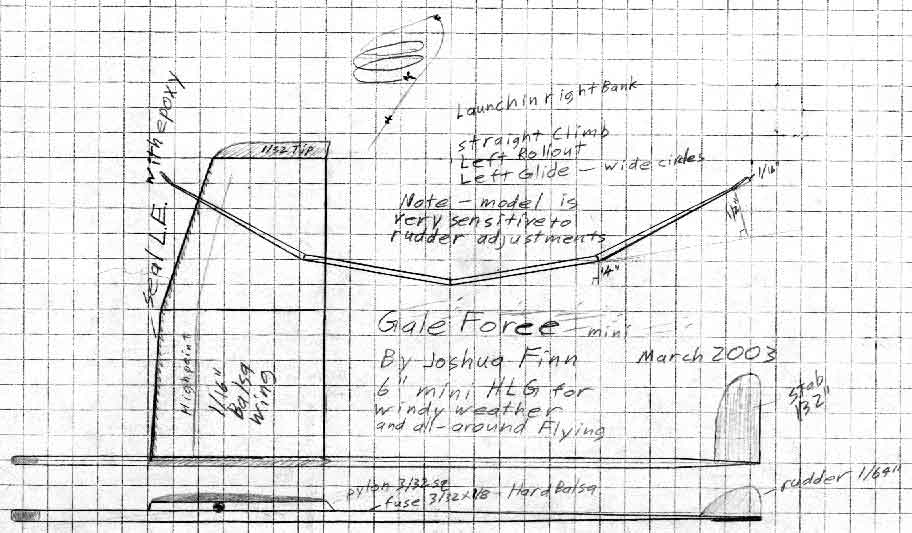 Launch in right Bank
straight Climb
Left Rollout
Left Glide - wide circles
Note - model is
very sensitive to
rudder adjustments
Seal L.E. with epoxy
1/32 Tip
1/16"
1/4"
Gale Force - mini
By Joshua Finn
March 2003
6" mini HLG for
windy weather
and all-around Flying
Highpoint
1/16"
Balsa
Wing
Stab
1/32"
rudder 1/64"
pylon 3/32 sq
fuse 3/32 x 1/8 - Hard Balsa